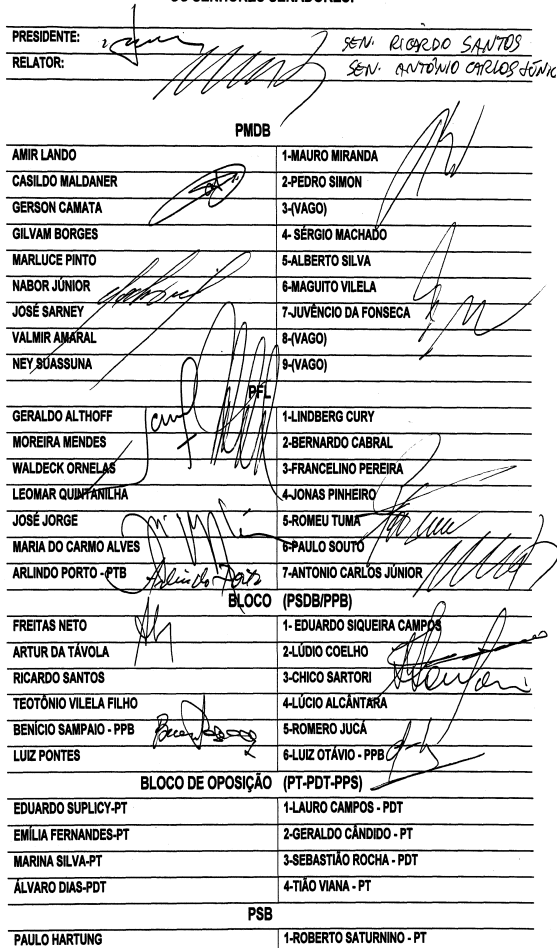 OS SENHORES SENADORES:
PRESIDENTE: SEN. RICARDO SANTOS
RELATOR: SEN. ANTÔNIO CARLOS JÚNIO
PMDB
AMIR LANDO 1-MAURO MIRANDA
CASILDO MALDANER 2-PEDRO SIMON
GERSON CAMATA 3-(VAGO)
GILVAM BORGES 4- SÉRGIO MACHADO
MARLUCE PINTO 5-ALBERTO SILVA
NABOR JÚNIOR 6-MAGUITO VILELA
JOSÉ SARNEY 7-JUVÊNCIO DA FONSECA
VALMIR AMARAL 8-(VAGO)
NEY SUASSUNA 9-(VAGO)
PFL
GERALDO ALTHOFF 1-LINDBERG CURY
MOREIRA MENDES 2-BERNARDO CABRAL
WALDECK ORNELAS 3-FRANCELINO PEREIRA
LEOMAR QUINTANILHA 4-JONAS PINHEIRO
JOSÉ JORGE 5-ROMEU TUMA
MARIA DO CARMO ALVES 6-PAULO SOUTO
ARLINDO PORTO - PTB Arlindo Porto 7-ANTONIO CARLOS JÚNIOR
BLOCO (PSDB/PPB)
FREITAS NETO 1- EDUARDO SIQUEIRA CAMPOS
ARTUR DA TÁVOLA 2-LÚDIO COELHO
RICARDO SANTOS 3-CHICO SARTORI
TEOTÔNIO VILELA FILHO 4-LÚCIO ALCÂNTARA
BENÍCIO SAMPAIO - PPB 5-ROMERO JUCÁ
LUIZ PONTES 6-LUIZ OTÁVIO - PPB
BLOCO DE OPOSIÇÃO (PT-PDT-PPS)
EDUARDO SUPLICY-PT 1-LAURO CAMPOS - PDT
EMÍLIA FERNANDES-PT 2-GERALDO CÂNDIDO - PT
MARINA SILVA-PT 3-SEBASTIÃO ROCHA - PDT
ÁLVARO DIAS-PDT 4-TIÃO VIANA - PT
PSB
PAULO HARTUNG 1-ROBERTO SATURNINO - PT